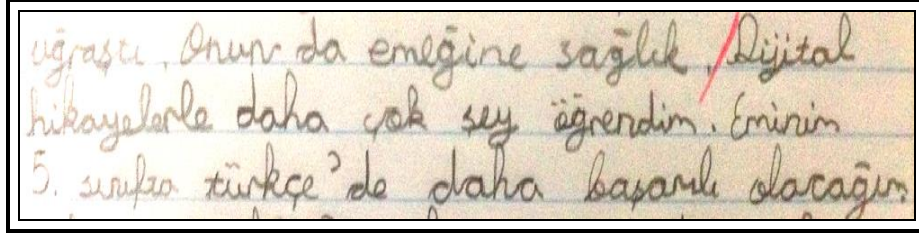 uğraştı. Onun da emeğine sağlık. Dijital
hikayelerle daha çok şey öğrendim. Eminim
5. sınıfta türkçe'de daha başarılı olacağım.